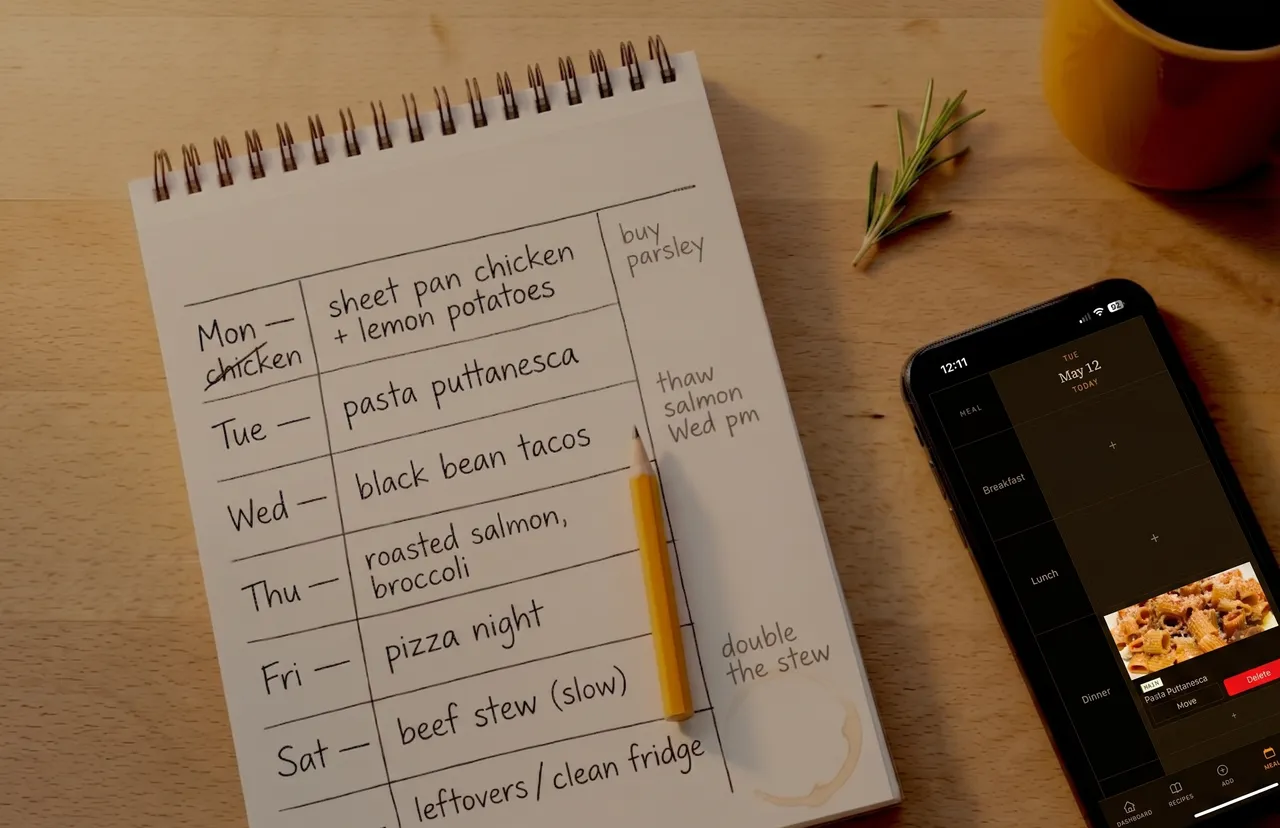 Mon —
chicken
sheet pan chicken
+ lemon potatoes
buy
parsley
Tue —
pasta puttanesca
thaw
salmon
Wed pm
Wed —
black bean tacos
Thu —
roasted salmon,
broccoli
Fri —
pizza night
double
the stew
Sat —
beef stew (slow)
leftovers / clean fridge
12:11
02
TUE
May 12
TODAY
MEAL
+
Breakfast
+
Lunch
Dinner
MAIN
Pasta Puttanesca
Move
Delete
+
DASHBOARD
RECIPES
ADD
MEAL